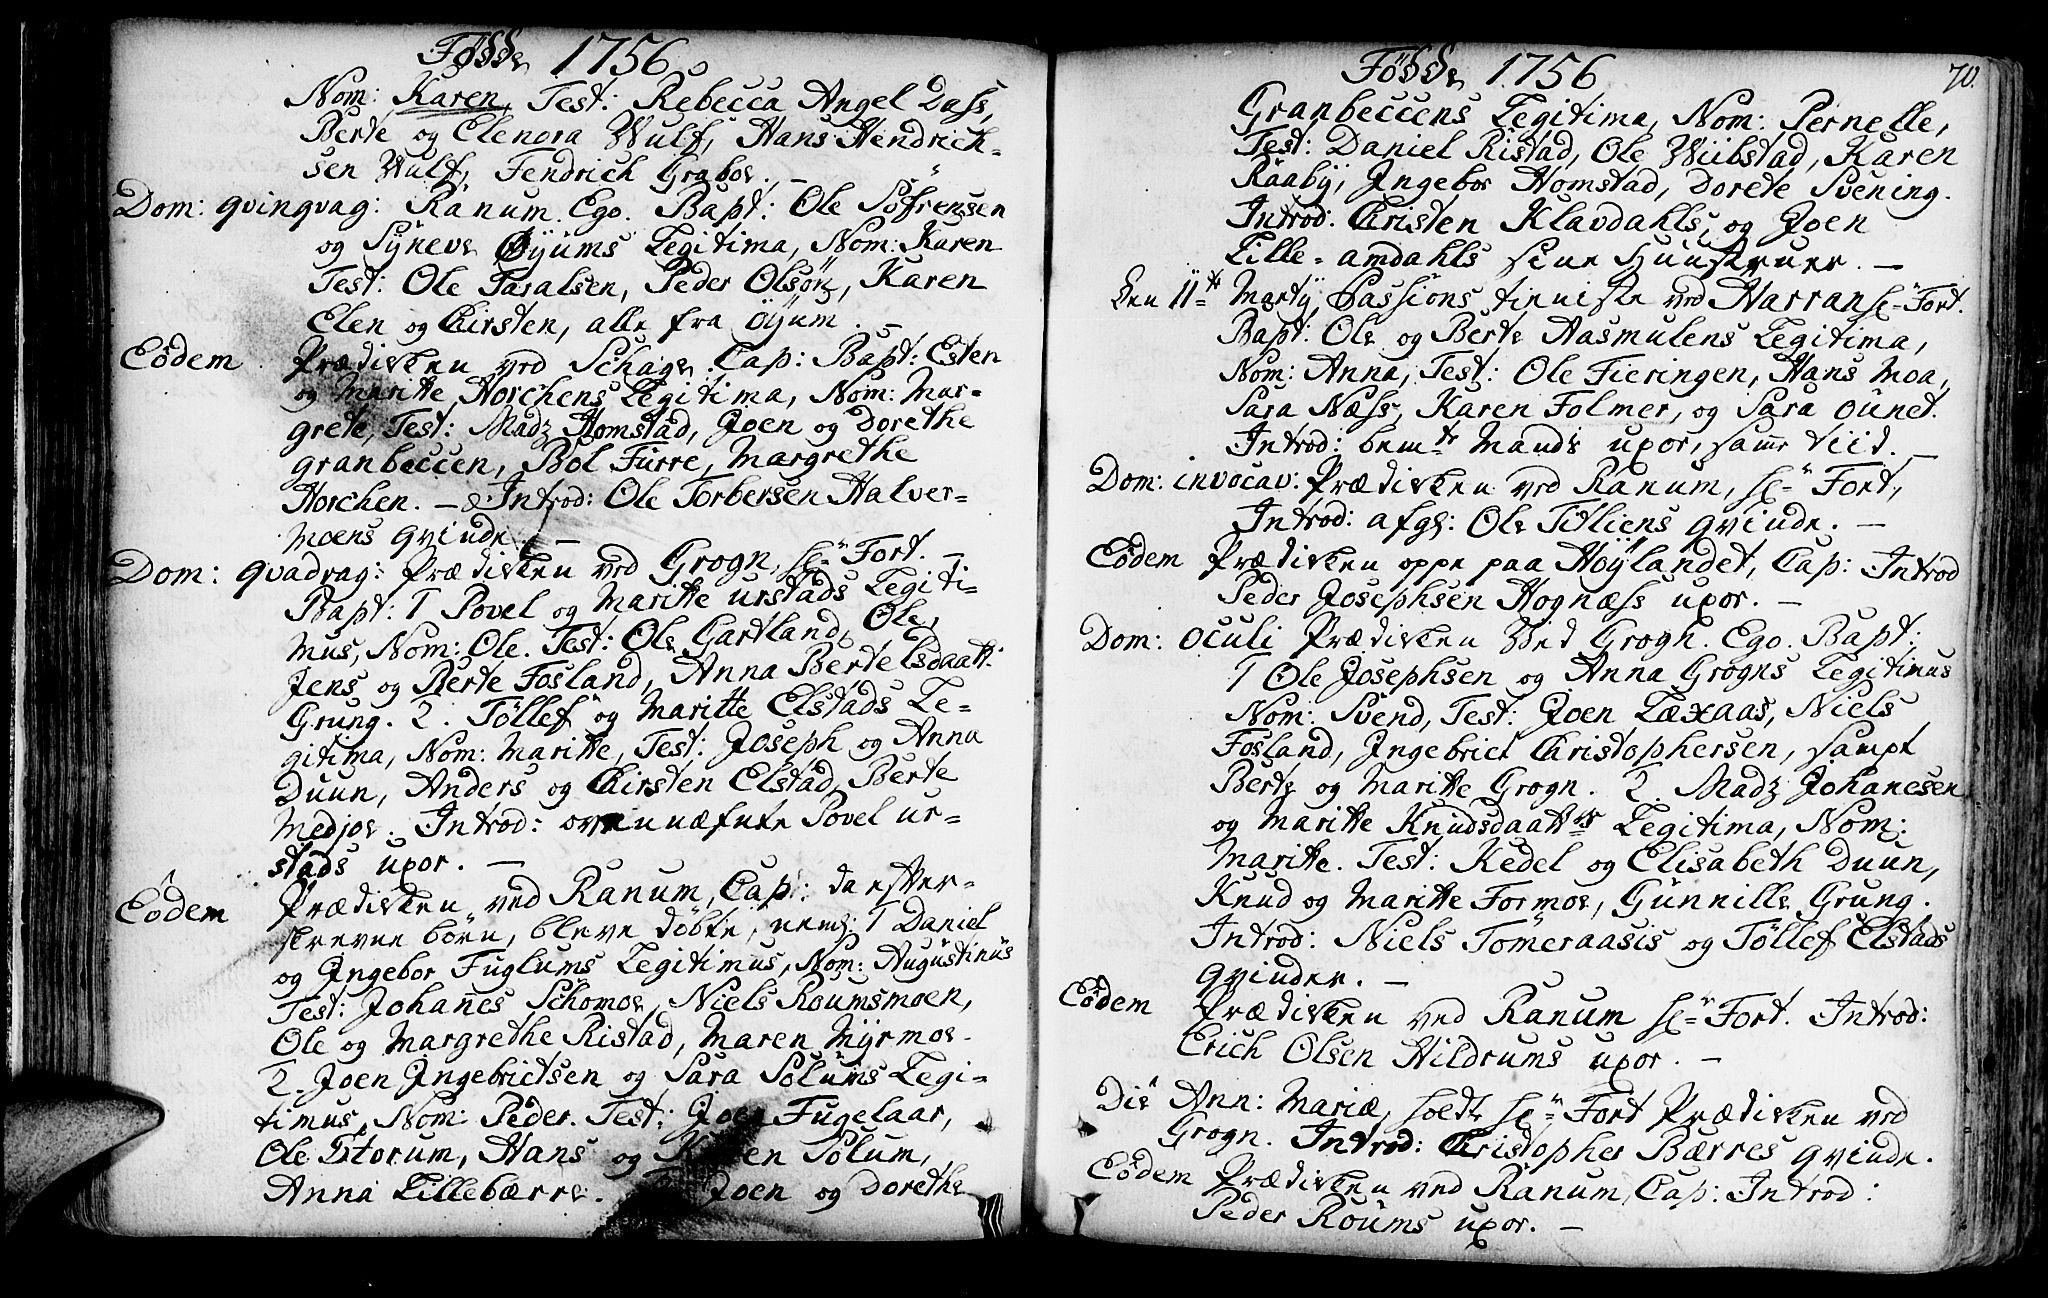 Födde 1756
Nom: Karen, Test: Rebecca Angel Dass,
Berte og Elenora Wulf, Hans Hendrich-
sen Wulf, Fendrich Graboe. –
Dom: qvinqvag: Ranum. Ego. Bapt: Ole Söfrensen
og Sÿneve Öÿums Legitima, Nom: Karen
Test: Ole Faralsen, Peder Olsön, Karen
Elen og Kirsten, alle fra Öÿum. –
Eodem Prædicken ved Schage. Cap: Bapt: Esten
og Maritte Horchens Legitima, Nom: Mar-
grete, Test: Madz Homstad, Joen og Dorethe
Granbeccen, Bol Furre, Margrethe
Horchen. – Introd: Ole Torbersen Halver-
moens qvinde. –
Dom: qvadrag: Prædicken ved Grogn, Hr Fort. –
Bapt: 1 Povel og Maritte Urstads Legiti-
mus, Nom: Ole. Test: Ole Gartland, Ole,
Jens og Berte Fosland, Anna Bertelsdaatt:
Grung. 2. Töllef og Maritte Elstads Le-
gitima, Nom: Maritte, Test: Joseph og Anna
Duun, Anders og Kirsten Elstad, Berte
Medjoe. Introd: ovennæfnte Povel Ur-
stads uxor. –
Eodem Prædicken ved Ranum, Cap: da efter-
skrevne börn, bleve döbte, neml: 1 Daniel
og Ingebor Fuglums Legitimus, Nom: Augustinus
Test: Johanes Schomoe, Niels Roumsmoen,
Ole og Margrethe Ristad, Maren Mÿrmoe.
2. Joen Ingebrictsen og Sara Solums Legi-
timus, Nom: Peder. Test: Joen Fugelaar,
Ole Storum, Hans og Karen Solum,
Anna Lillebærre. Joen og Dorethe
Födde 1756 70.
Granbeccens Legitima, Nom: Pernelle,
Test: Daniel Ristad, Ole Wiibstad, Karen
Raabÿ, Ingebor Homstad, Dorete Svening.
Introd: Kristen Klavdahls, og Joen
Lille-amdahls sine Huustruer. –
Den 11te Martÿ, Passions tienniste ved Harran Hr Fort.
Bapt: Ole og Berte Aasmulens Legitima,
Nom: Anna, Test: Ole Fieringen, Hans Moa,
Sara Næss, Karen Folmer, og Sara Ounet.
Introd: bemte Mands uxor, samme tiid. –
Dom: invocav: Prædicken ved Ranum, Hr Fort,
Introd: afgl: Ole Töliens qvinde. –
Eodem Prædicken oppe paa Höÿlandet, Cap: Introd
Peder Josephsen Hognæss uxor. –
Dom: oculi Prædicken Wed Grogn. Ego. Bapt:
1 Ole Josephsen og Anna Grogns Legitimus
Nom: Svend, Test: Joen Læxaas, Niels
Fosland, Ingebrict Christophersen, sampt
Berte og Maritte Grogn. 2. Madz Johanesen
og Maritte Knudsdaatters Legitima, Nom:
Maritte. Test: Kedel og Elisabeth Duun,
Knud og Maritte Formoe, Gunnille Grung.
Introd: Niels Tömeraasis og Töllef Elstads
qvinder. –
Eodem Prædicken ved Ranum Hr Fort. Introd:
Erich Olsen Hildrums uxor. –
Die Ann: Mariæ, holdt Hr Fort Prædicken ved
Grogn. Introd: Christopher Bærres qvinde.
Eodem Prædicken ved Ranum, Cap: Introd:
Peder Roums uxor. –